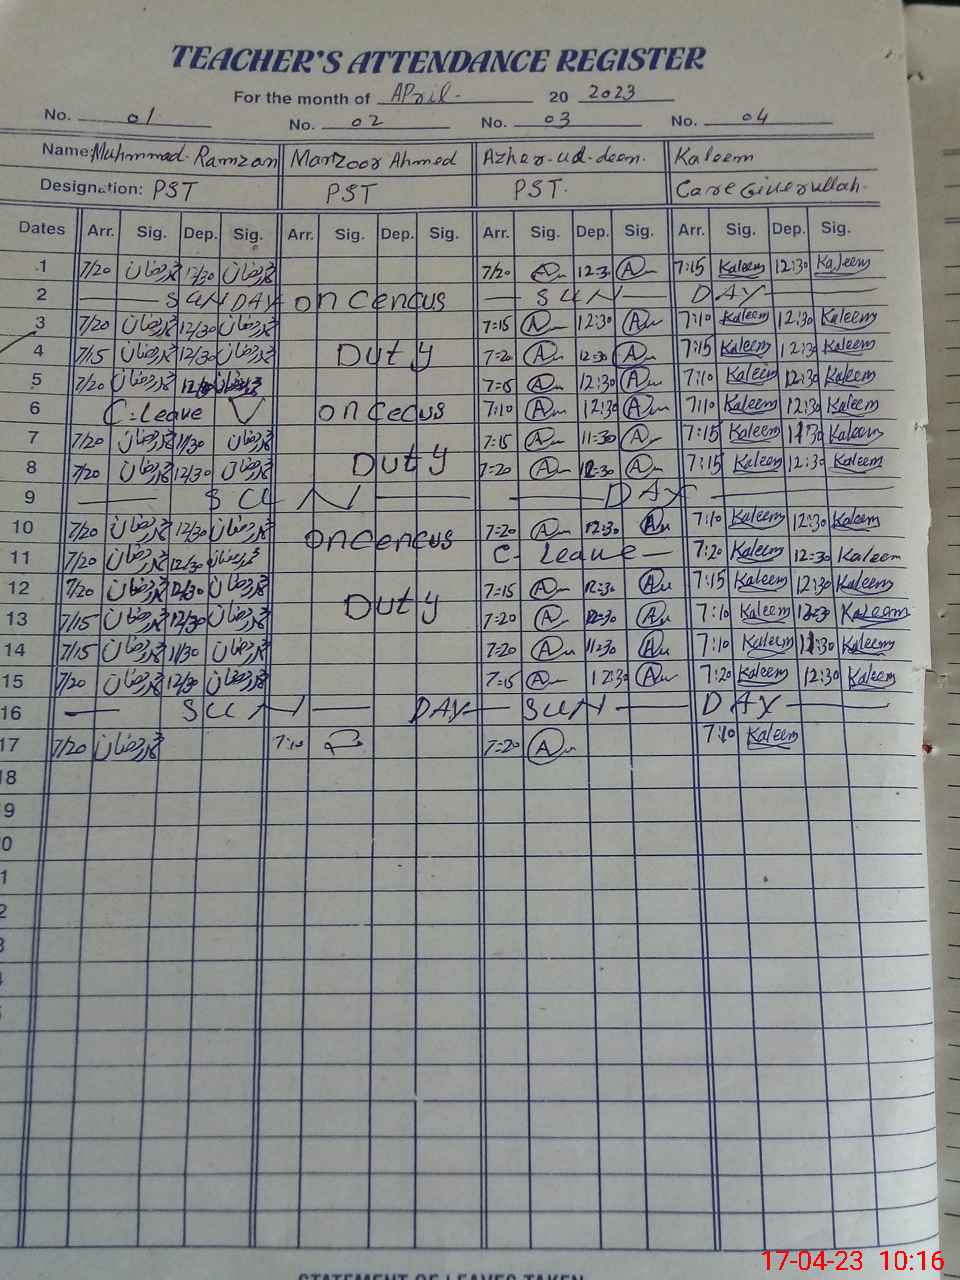 TEACHER'S ATTENDANCE REGISTER
For the month of April. 20 2023
No. 01 No. 02 No. 03 No. 04
Name: Muhmmad Ramzan Manzoor Ahmed Azher-ud-deen. Kaleem
Designation: PST PST PST. Care Giver ullah.
Dates Arr. Sig. Dep. Sig. Arr. Sig. Dep. Sig. Arr. Sig. Dep. Sig. Arr. Sig. Dep. Sig.
1 7/20 محمد رمضان 12/30 محمد رمضان 7/20 12=30 7:15 Kaleem 12:30 Kaleem
2 SUNDAY on Census SUN DAY
3 7/20 محمد رمضان 12/30 محمد رمضان 7=15 12:30 7:10 Kaleem 12:30 Kaleem
4 7/15 محمد رمضان 12/30 محمد رمضان Duty 7=20 12=30 7:15 Kaleem 12:30 Kaleem
5 7/20 محمد رمضان 12/30 محمد رمضان 7=15 12:30 7:10 Kaleem 12:30 Kaleem
6 C-Leave on Cecus 7:10 12:30 7:10 Kaleem 12:30 Kaleem
7 7/20 محمد رمضان 11/30 محمد رمضان 7:15 11=30 7:15 Kaleem 11:30 Kaleem
8 7/20 محمد رمضان 12/30 محمد رمضان Duty 7=20 12=30 7:15 Kaleem 12:30 Kaleem
9 SUN DAY
10 7/20 محمد رمضان 12/30 محمد رمضان on Cencus 7=20 12=30 7:10 Kaleem 12:30 Kaleem
11 7/20 محمد رمضان 12/30 محمد رمضان C- leave 7:20 Kaleem 12=30 Kaleem
12 7/20 محمد رمضان 12/30 محمد رمضان Duty 7=15 12=30 7:15 Kaleem 12:30 Kaleem
13 7/15 محمد رمضان 12/30 محمد رمضان 7=20 12=30 7:10 Kaleem 12=30 Kaleem
14 7/15 محمد رمضان 11/30 محمد رمضان 7=20 11=30 7:10 Kaleem 11:30 Kaleem
15 7/20 محمد رمضان 12/30 محمد رمضان 7=15 12:30 7:20 Kaleem 12:30 Kaleem
16 SUN DAY SUN DAY
17 7/20 محمد رمضان 7:10 7=20 7:10 Kaleem
18
9
0
1
2
3
STATEMENT OF LEAVES TAKEN
17-04-23 10:16